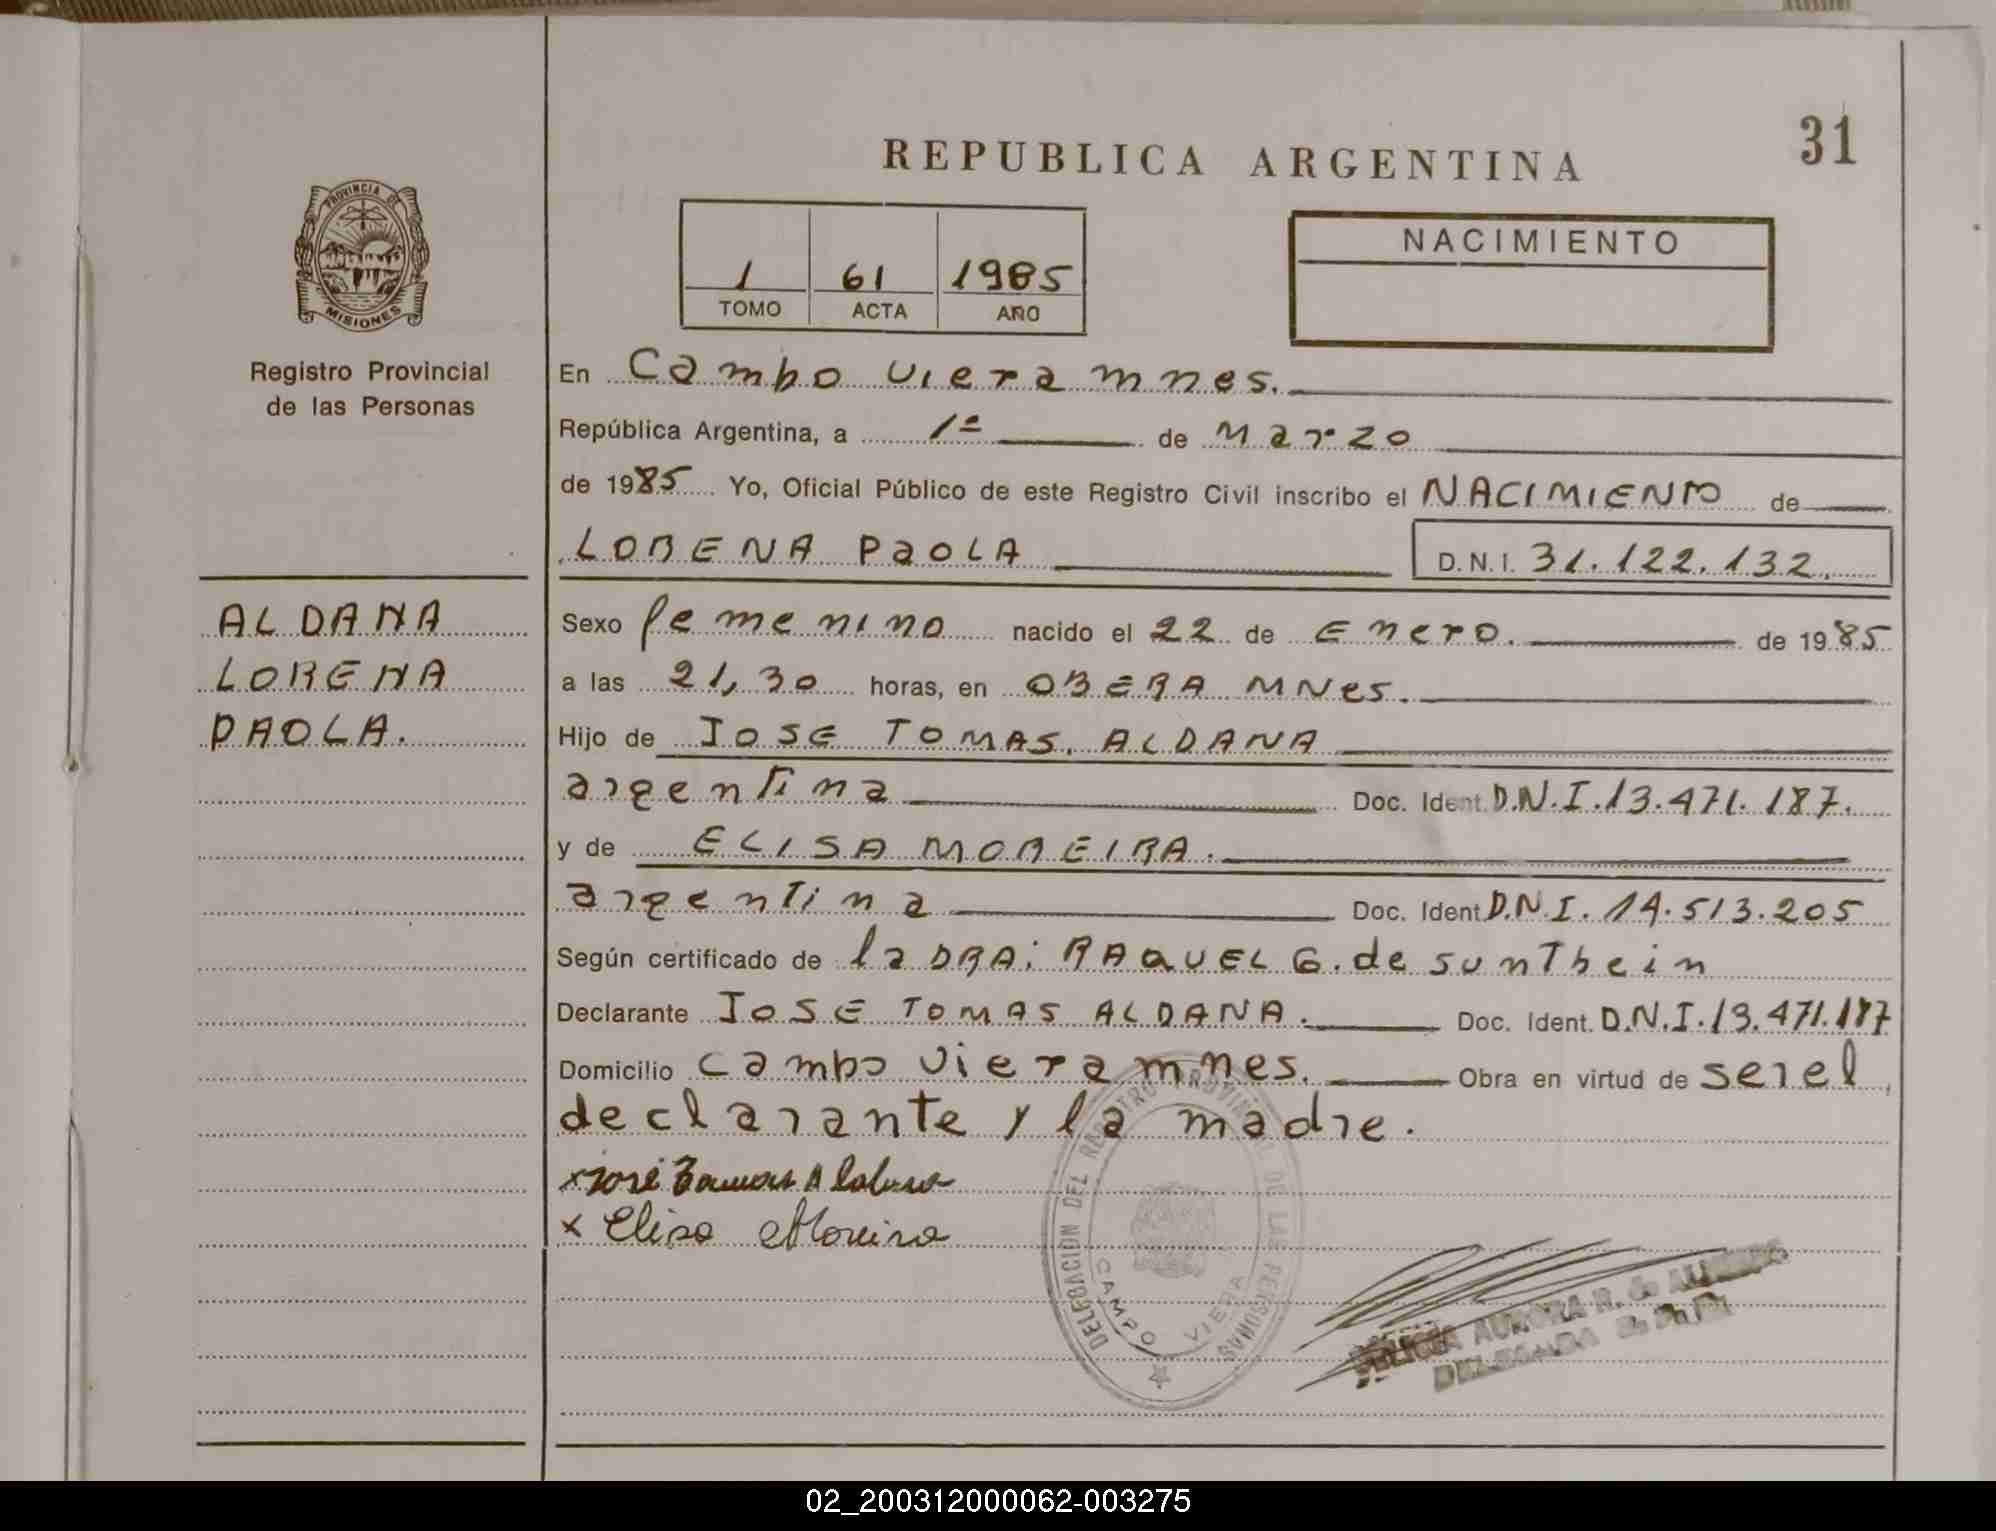 REPUBLICA ARGENTINA
31
PROVINCIA DE
MISIONES
Registro Provincial
de las Personas
1 61 1985
TOMO ACTA AÑO
NACIMIENTO
En Campo viera mnes.
República Argentina, a 1º de Marzo
de 1985 Yo, Oficial Público de este Registro Civil inscribo el NACIMIENTO de
LORENA PaOLA D.N.I. 31.122.132.
ALDANA
LORENA
PAOLA.
Sexo femenino nacido el 22 de Enero. de 1985
a las 21,30 horas, en OBERA MNes.
Hijo de JOSE TOMAS. ALDANA
argentina Doc. Ident. D.N.I.13.471.187.
y de ELISA MOREIRA.
argentina Doc. Ident. D.N.I. 14.513.205
Según certificado de la DRA: RAQUEL G. de sunthein
Declarante JOSE TOMAS ALDANA. Doc. Ident. D.N.I.13.471.187
Domicilio campo viera mnes. Obra en virtud de serel
declarante y la madre.
x José Tomas Aldana
x Elisa Moreira
DELEGACION DEL REGISTRO PROVINCIAL DE LAS PERSONAS
CAMPO VIERA
AURORA R. de
DELEGADA
02_200312000062-003275